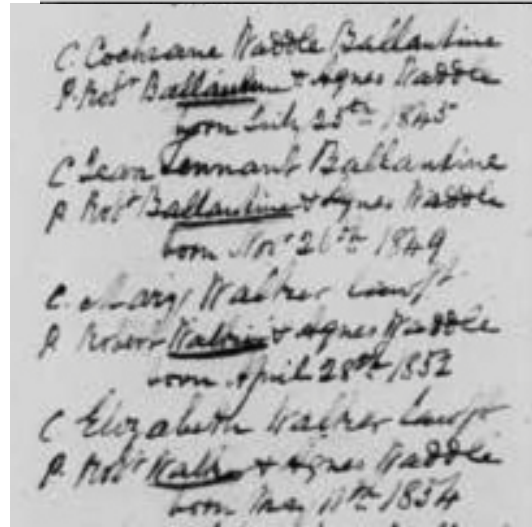 C Cochrane Waddle Ballantine
P. Robt Ballantine & Agnes Waddle
born July 25th 1845
C Jean Tennant Ballantine
P Robt Ballantine & Agnes Waddle
born Novr 26th 1849
C. Mary Walker
P Robert Walker & Agnes Waddle
born April 28th 1852
C Elizabeth Walker
P. Robt Walker & Agnes Waddle
born May 11th 1854